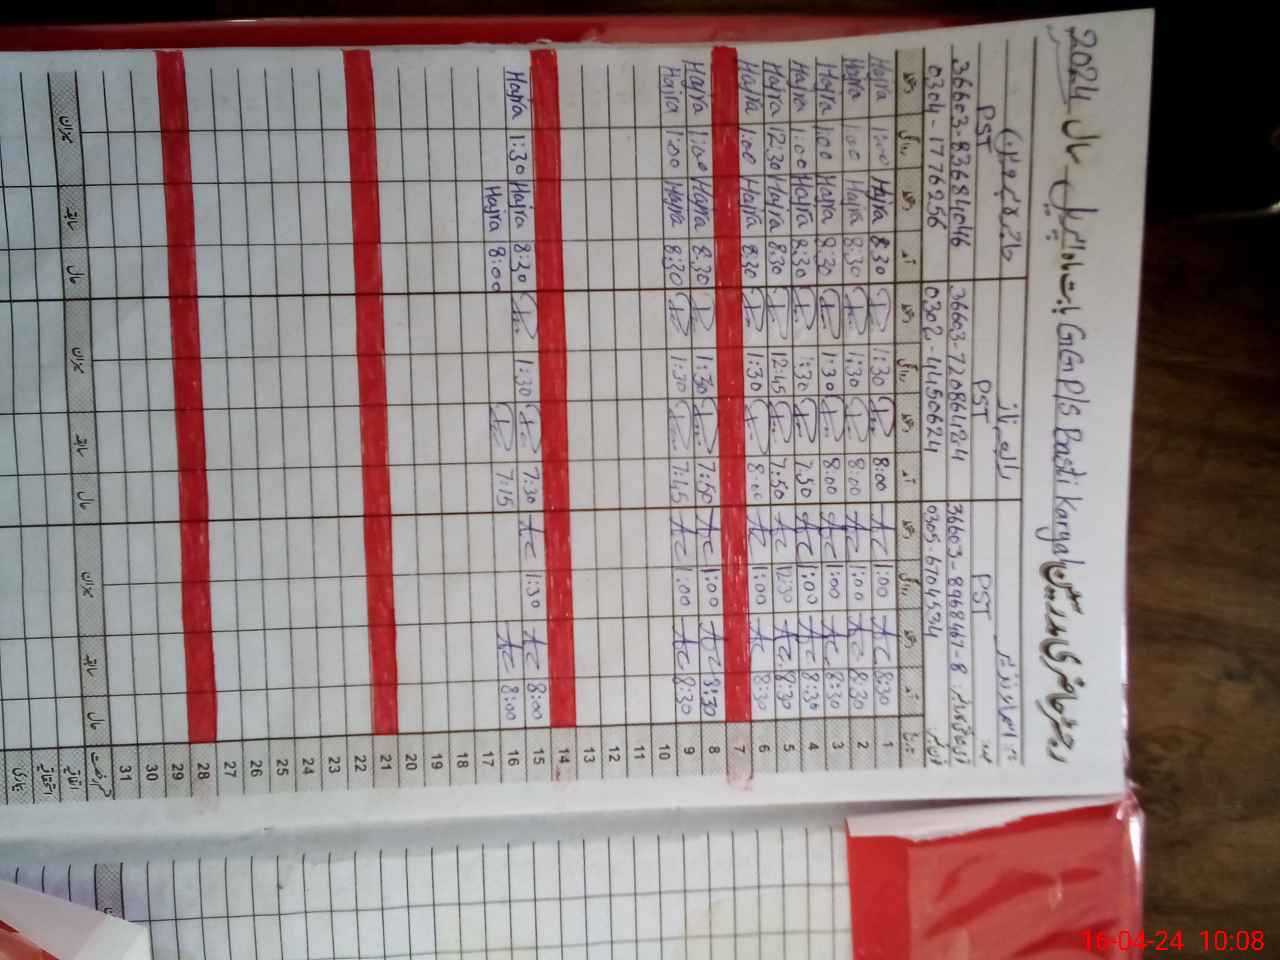 رجسٹر حاضری مدرسین GGP/S Basti Karyal بابت ماہ اپریل سال 2024
نام اسماء عزیز
عہدہ PST PST PST
36603-8968467-8 36603-7208642-4 36603-8368404-6
فون نمبر 0305-6704534 0302-4450624 0304-1776256
تاریخ آمد دستخط روانگی دستخط آمد دستخط روانگی دستخط آمد دستخط روانگی دستخط
1 8:30 Ac 1:00 Ac 8:00 1:30 8:30 Hajra 1:00 Hajra
2 8:30 Ac 1:00 Ac 8:00 1:30 8:30 Hajra 1:00 Hajra
3 8:30 Ac 1:00 Ac 8:00 1:30 8:30 Hajra 1:00 Hajra
4 8:30 Ac 1:00 Ac 7:50 1:30 8:30 Hajra 1:00 Hajra
5 8:30 Ac 12:30 Ac 7:50 12:45 8:30 Hajra 12:30 Hajra
6 8:30 Ac 1:00 Ac 8:00 1:30 8:30 Hajra 1:00 Hajra
7
8 8:30 Ac 1:00 Ac 7:50 1:30 8:30 Hajra 1:00 Hajra
9 8:30 Ac 1:00 Ac 7:45 1:30 8:30 Hajra 1:00 Hajra
10
11
12
13
14
15 8:00 Ac 1:30 Ac 7:30 1:30 8:30 Hajra 1:30 Hajra
16 8:00 Ac 7:15 8:00 Hajra
17
18
19
20
21
22
23
24
25
26
27
28
29
30
31
قسم رخصت حال سابقہ میزان حال سابقہ میزان حال سابقہ میزان
اتفاقیہ
استحقاقیہ
بیماری
16-04-24 10:08